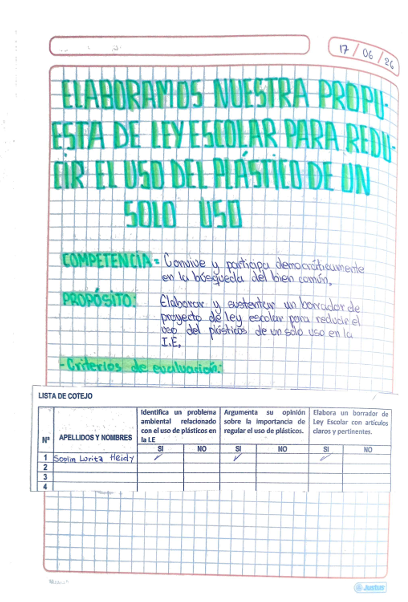 17 / 06 / 26
ELABORAMOS NUESTRA PROPU-
ESTA DE LEY ESCOLAR PARA REDU-
CIR EL USO DEL PLÁSTICO DE UN
SOLO USO
COMPETENCIA = Convive y participa democráticamente
en la búsqueda del bien común.
PROPÓSITO: Elaborar y sustentar un borrador de
proyecto de ley escolar para reducir el
uso del plásticos de un solo uso en la
I.E.
- Criterios de evaluación:
LISTA DE COTEJO
N° APELLIDOS Y NOMBRES
Identifica un problema ambiental relacionado con el uso de plásticos en la I.E
Argumenta su opinión sobre la importancia de regular el uso de plásticos.
Elabora un borrador de Ley Escolar con artículos claros y pertinentes.
SI NO SI NO SI NO
1 Heidy ✓ ✓ ✓
2
3
4
Justus